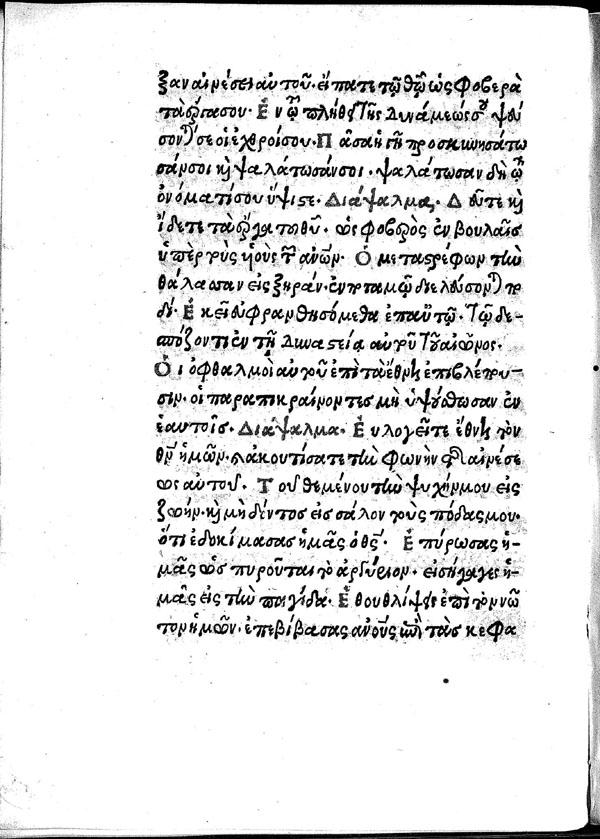 ξαν αἰνέσει αὐτοῦ· εἴπατε τῷ θῷ ὡς φοβερὰ
τὰ ἔργα σου· Ἐν τῷ πλήθει τῆς δυνάμεώς σου ψεύ
σονταί σε οἱ ἐχθροί σου· Πᾶσα ἡ γῆ προσκυνησάτω
σάν σοι κὴ ψαλάτωσάν σοι· ψαλάτωσαν δὴ τῷ
ὀνόματί σου ὕψιστε· Διάψαλμα· Δεῦτε κὴ
ἴδετε τὰ ἔργα τοῦ θῦ· ὡς φοβερὸς ἐν βουλαῖς
ὑπὲρ τοὺς υἱοὺς τῶν ἀνῶν· Ὁ μεταστρέφων τὴν
θάλασσαν εἰς ξηράν· ἐν ποταμῷ διελεύσονται πο
δί· Ἐκεῖ εὐφρανθησόμεθα ἐπ αὐτῷ· Τῷ δε-
σπόζοντι ἐν τῇ δυναστείᾳ αὐτοῦ τοῦ αἰῶνος·
Οἱ ὀφθαλμοὶ αὐτοῦ ἐπὶ τὰ ἔθνη ἐπιβλέπου-
σιν· οἱ παραπικραίνοντες μὴ ὑψούσθωσαν ἐν
ἑαυτοῖς· Διάψαλμα· Εὐλογεῖτε ἔθνη τὸν
θν ἡμῶν· κ ἀκουτίσατε τὴν φωνὴν τῆς αἰνέσε
ως αὐτοῦ· Τοῦ θεμένου τὴν ψυχήν μου εἰς
ζωήν· κὴ μὴ δόντος εἰς σάλον τοὺς πόδας μου·
ὅτι ἐδοκίμασας ἡμᾶς ὁ θς· Ἐπύρωσας ἡ-
μᾶς ὡς πυροῦται τὸ ἀργύριον· εἰσήγαγες ἡ-
μᾶς εἰς τὴν παγίδα· Ἔθου θλίψεις ἐπὶ τὸν νῶ
τον ἡμῶν· ἐπεβίβασας ἀνους ἐπὶ τὰς κεφα